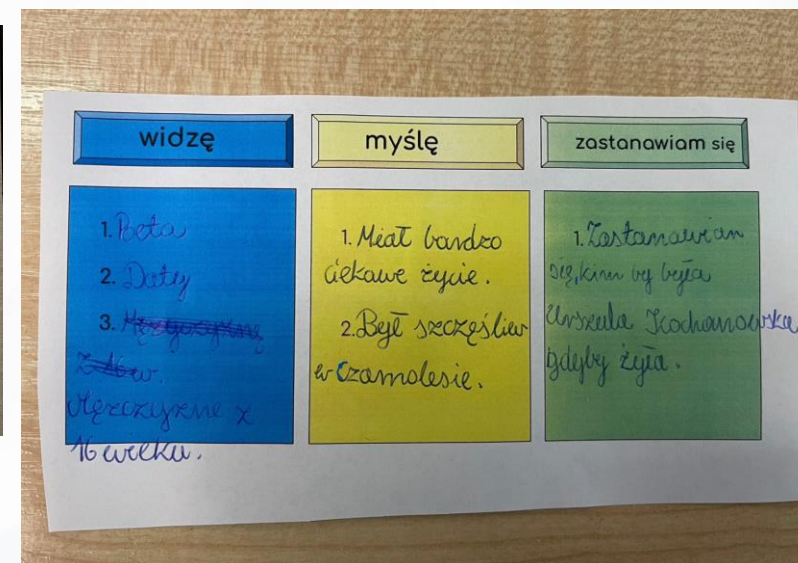 widzę
1. Poeta
2. Daty
3.
Mężczyznę z
16 wieku.
myślę
1. Miał bardzo
ciekawe życie.
2. Był szczęśliw
w Czarnolesie.
zastanawiam się
1. Zastanawiam
się, kim by była
Urszula Kochanowska
gdyby żyła.